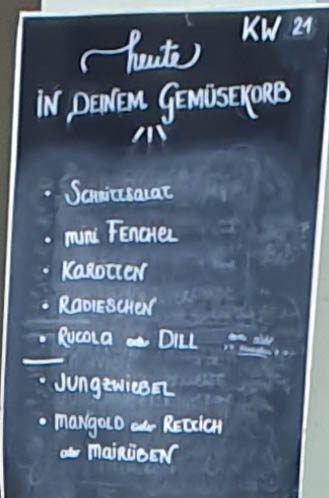 KW 21
heute
IN DEINEM GEMÜSEKORB
• SCHNITTSALAT
• mini FENCHEL
• KAROTTEN
• RADIESCHEN
• RUCOLA oder DILL
• JUNGZWIEBEL
• MANGOLD oder RETTICH
oder MAIRÜBEN